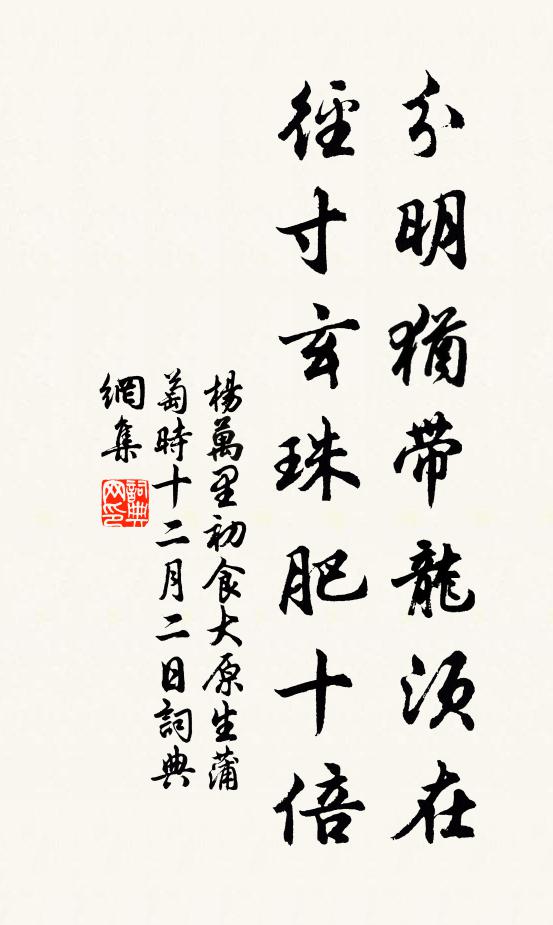 分明猶帶龍須在
徑寸玄珠肥十倍
楊萬里初食太原生蒲
萄時十二月二日詞典
網集
詞典網印